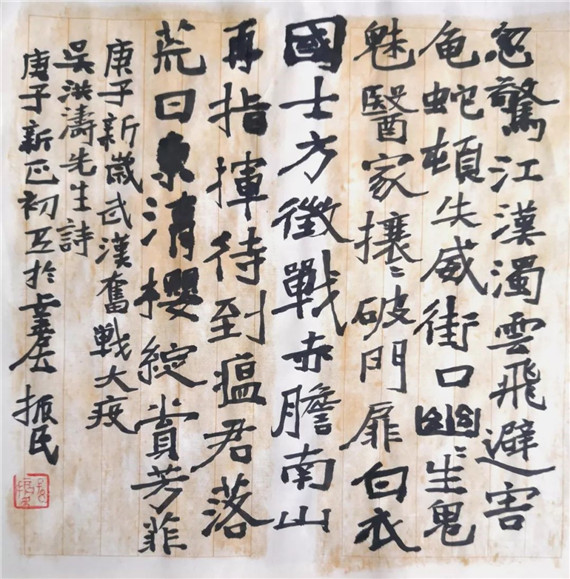 忽驚江漢濁雲飛避害
龟蛇頓失威街口幽〻生鬼
魅醫家攘〻破門扉白衣
國士方徵戰赤膽南山
再指揮待到瘟君落
荒日東清櫻綻賞芳菲
庚子新歲武漢奮戰大疫
吴洪濤先生詩
庚子新正初五於居振民